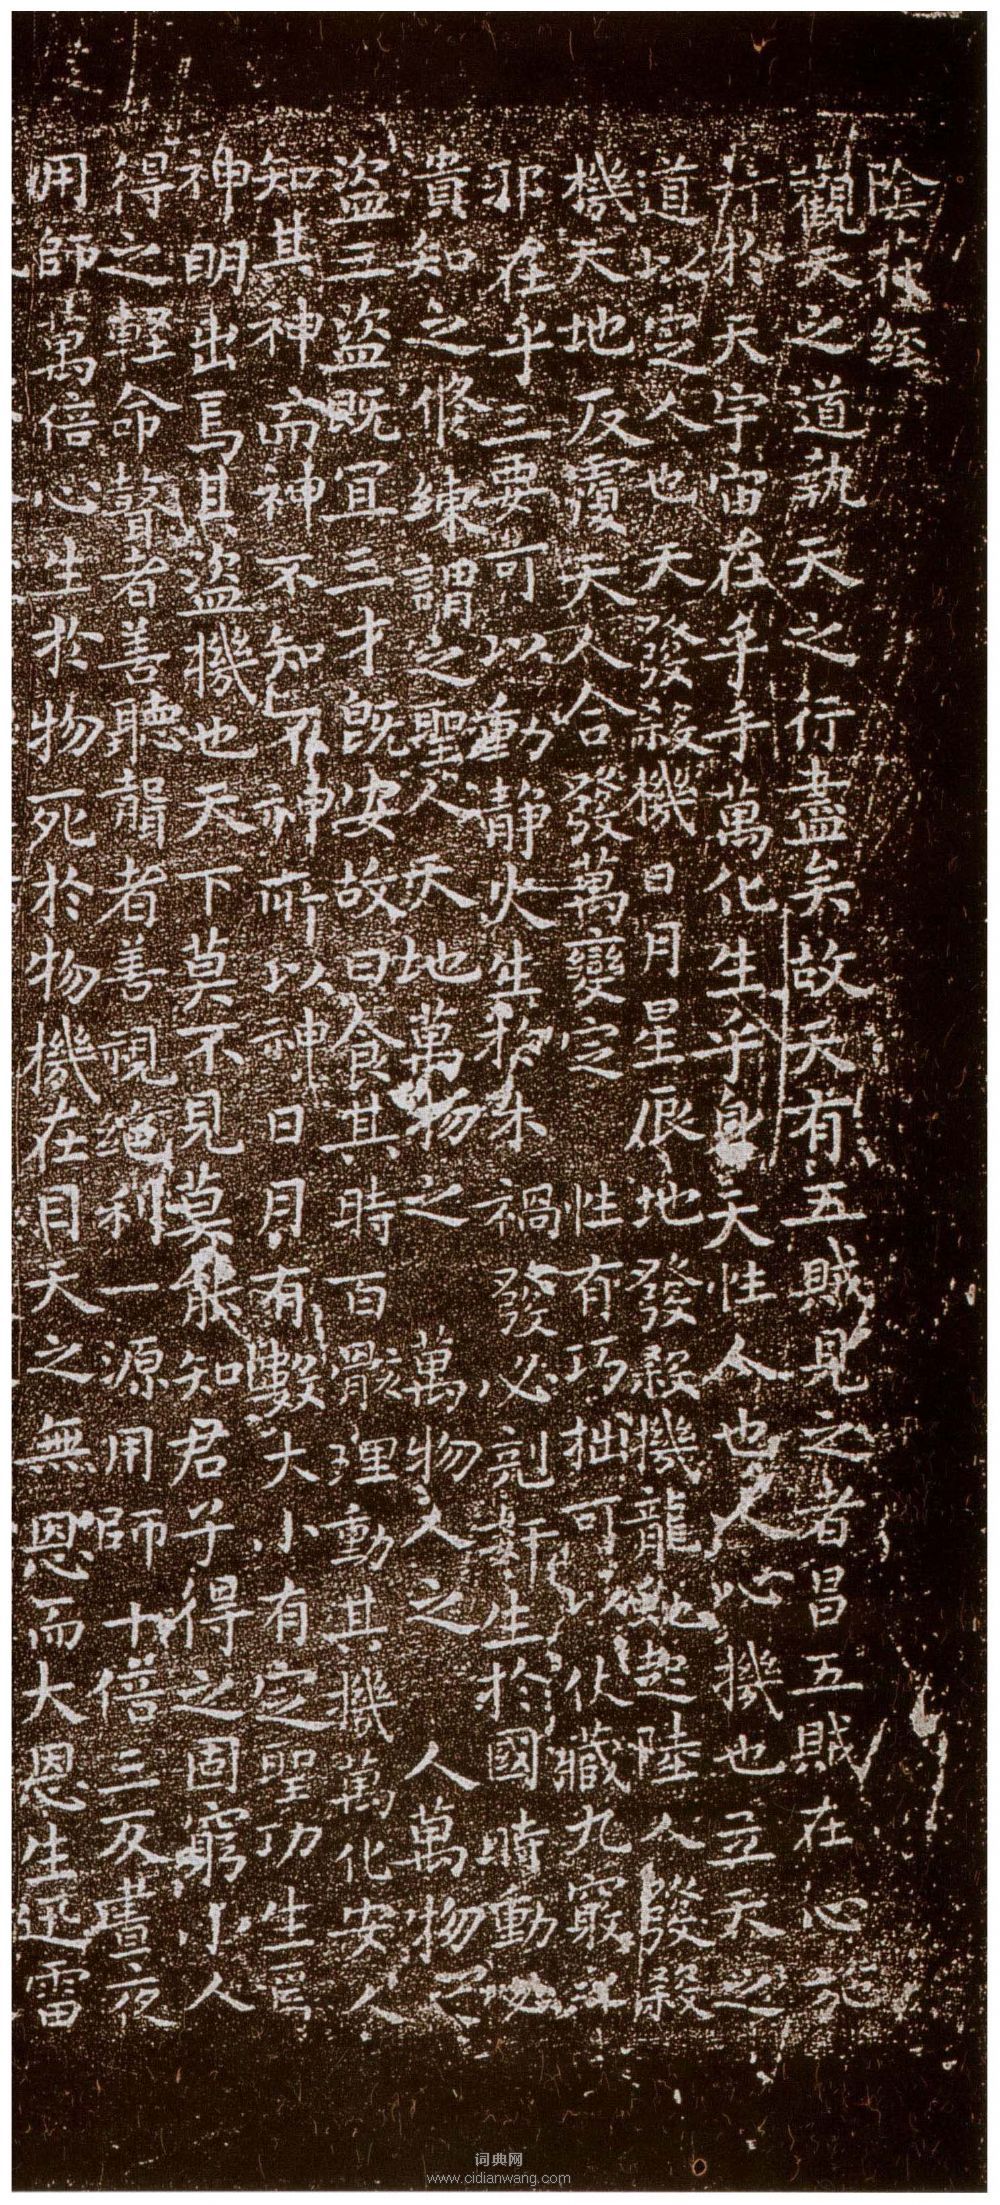 陰苻経
觀天之道執天之行盡矣故天有五賊見之者昌五賊在心施
行於天宇宙在乎手萬化生乎身天性人也人心機也立天之
道以定人也 天發殺機日月星辰地發殺機龍虵起陸人發殺
機天地反覆天人合發萬變定 性有巧拙可以伏藏九竅之
邪在乎三要可以動静火生於木 禍發必剋姧生於國 時動必
潰知之修練謂之聖人天地萬物之 萬物人之 人萬物之
盜三盜既宜三才既安故曰食其時百骸理動其機萬化安人
知其神而神不知不神所以神日月有數大小有定聖功生焉
神明出焉其盜機也天下莫不見莫能知君子得之固窮小人
得之軽命瞽者善聽聾者善視絕利一源用師十倍三反晝夜
用師萬倍心生於物死於物機在目天之無恩而大恩生迅雷
词典网
www.cidianwang.com